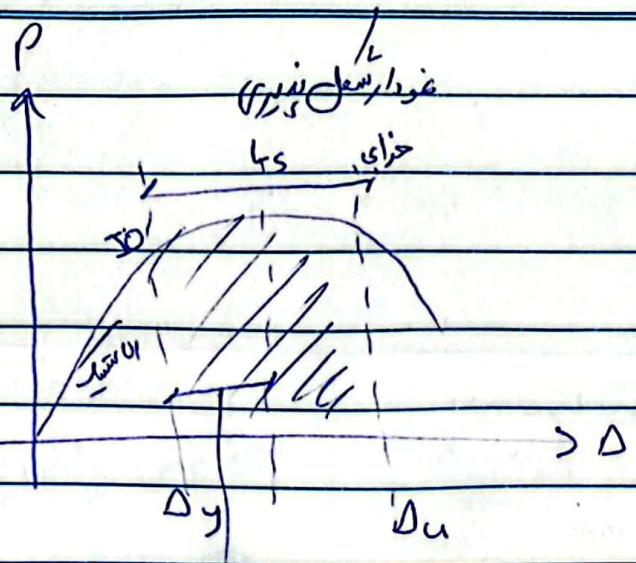 P
نمودار شکل پذیری
LS
خرابی
IO
الاستیک
Δ
Δy
Δu